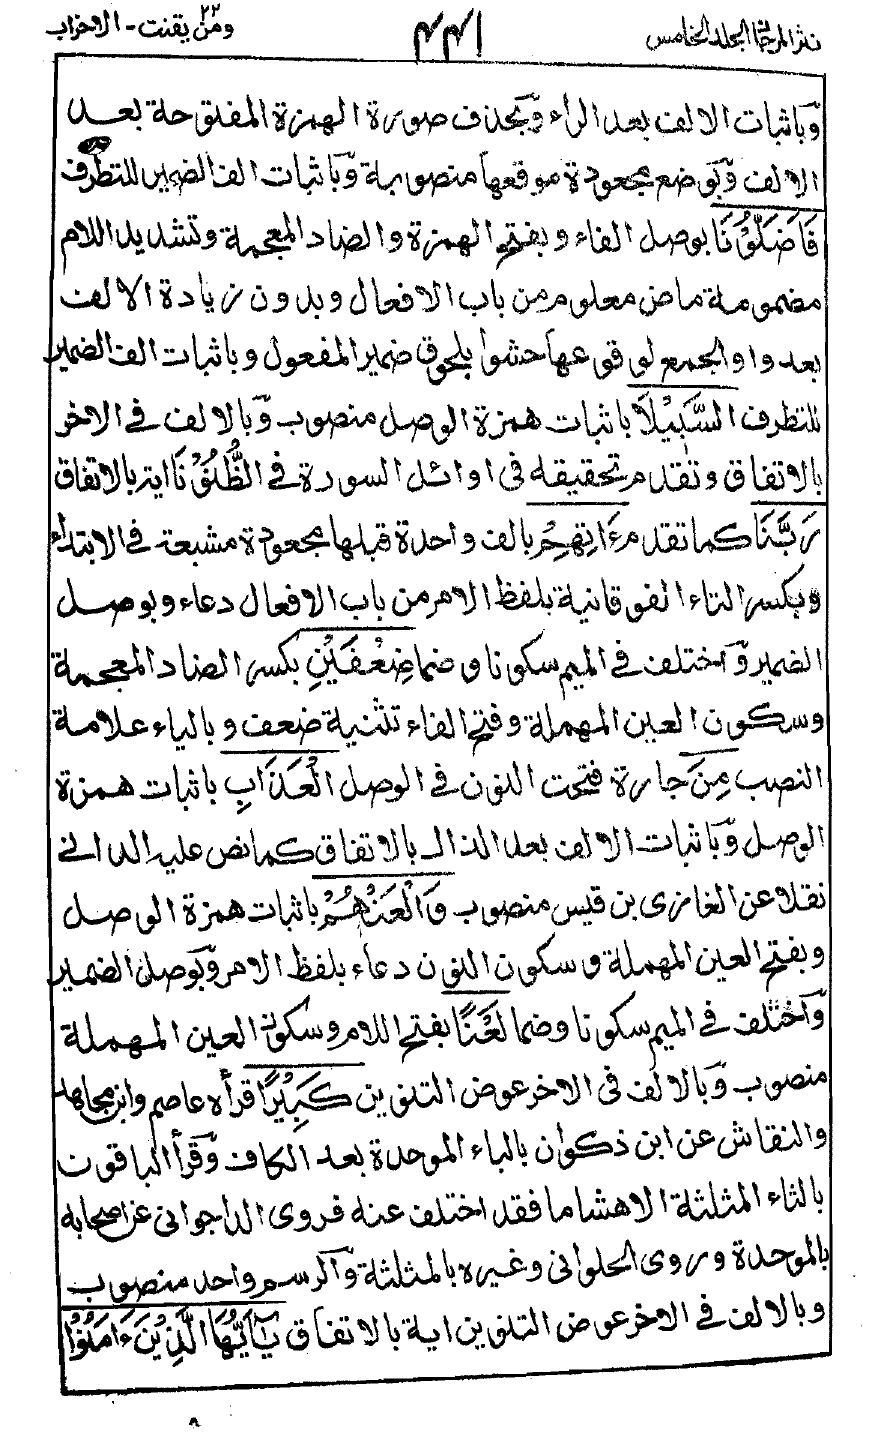 نثر المرجان المجلد الخامس ۴۴۱ ومن يقنت ۲۲ - الاحزاب
وباثبات الالف بعد الراء وبحذف صورة الهمزة المفتوحة بعد
الالف وبوضع مجعودة موقعها منصوبة وباثبات الف الضمير للتطرف
فَاَضَلُّوْنَا بوصل الفاء وبفتح الهمزة والضاد المعجمة وتشديد اللام
مضمومة ماض معلوم من باب الافعال وبدون زيادة الالف
بعد واو الجمع لوقوعها حشوا بلحوق ضمير المفعول وباثبات الف الضمير
للتطرف السَّبِيْلَا باثبات همزة الوصل منصوب وبالالف في الاخر
بالاتفاق وتقدم تحقيقه في اوائل السورة في الظُّنُوْنَا اية بالاتفاق
رَبَّنَا كما تقدم ءَاتِهِمْ بالف واحدة قبلها مجعودة مشبعة في الابتداء
وبكسر التاء الفوقانية بلفظ الامر من باب الافعال دعاء وبوصل
الضمير واختلف في الميم سكونا وضما ضِعْفَيْنِ بكسر الضاد المعجمة
وسكون العين المهملة وفتح الفاء تثنية ضعف وبالياء علامة
النصب مِنَ جارة فتحت النون في الوصل الْعَذَابِ باثبات همزة
الوصل وباثبات الالف بعد الذال بالاتفاق كما نص عليه الداني
نقلا عن الغازي بن قيس منصوب وَالْعَنْهُمْ باثبات همزة الوصل
وبفتح العين المهملة وسكون النون دعاء بلفظ الامر وبوصل الضمير
واختلف في الميم سكونا وضما لَعْنًا بفتح اللام وسكون العين المهملة
منصوب وبالالف في الاخر عوض التنوين كَبِيْرًا قرأه عاصم وابن مجاهد
والنقاش عن ابن ذكوان بالباء الموحدة بعد الكاف وقرأ الباقون
بالثاء المثلثة الا هشاما فقد اختلف عنه فروى الداجواني عن اصحابه
بالموحدة وروى الحلواني وغيره بالمثلثة والرسم واحد منصوب
وبالالف في الاخر عوض التنوين اية بالاتفاق يٰٓاَيُّهَا الَّذِيْنَ ءَامَنُوْا
۸